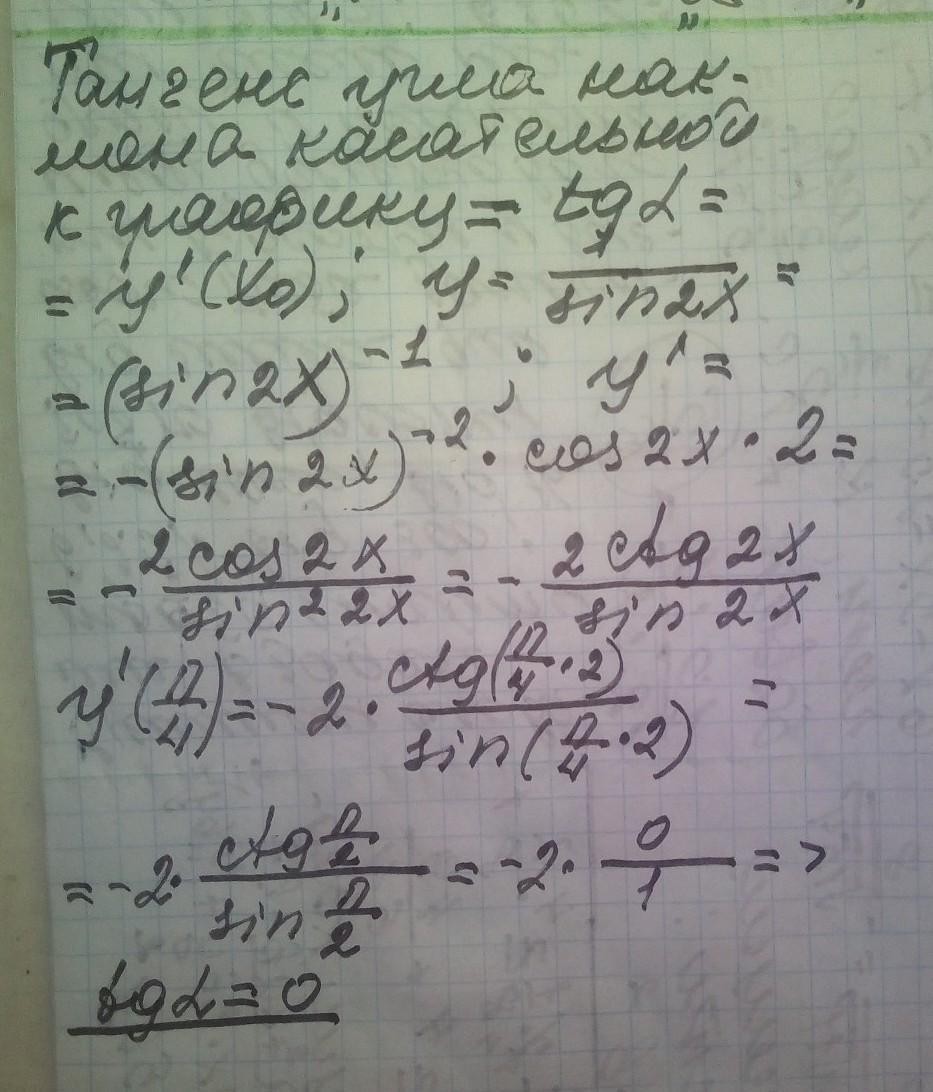 Тангенс угла нак-
лона касательной
к графику = tg α =
= y'(x₀); y = 1/sin 2x =
= (sin 2x)⁻¹; y' =
= -(sin 2x)⁻² · cos 2x · 2 =
= - 2 cos 2x / sin² 2x = - 2 ctg 2x / sin 2x
y'(π/4) = -2 · ctg(π/4 · 2) / sin(π/4 · 2) =
= -2 · ctg π/2 / sin π/2 = -2 · 0/1 = >
tg α = 0